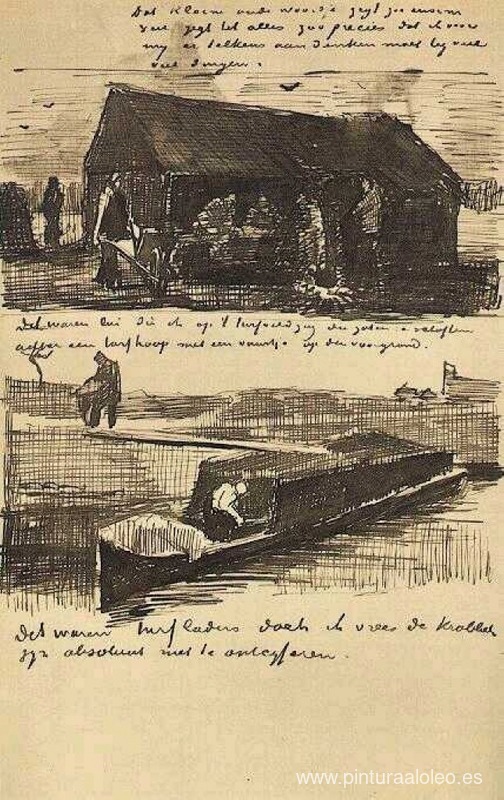 Dat kleine oude woordje zegt zoo enorm
veel zegt het alles zoo precies dat ik voor
my er telkens aan denken moet bij veel
veel dingen.
Dat waren lui die ik op 't turfveld zag die zaten
achter een turfhoop met een vuurtje op den voorgrond.
Dat waren turfladers doch ik vrees de krabbels
zyn absoluut niet te ontcyferen.
www.pinturaaloleo.es